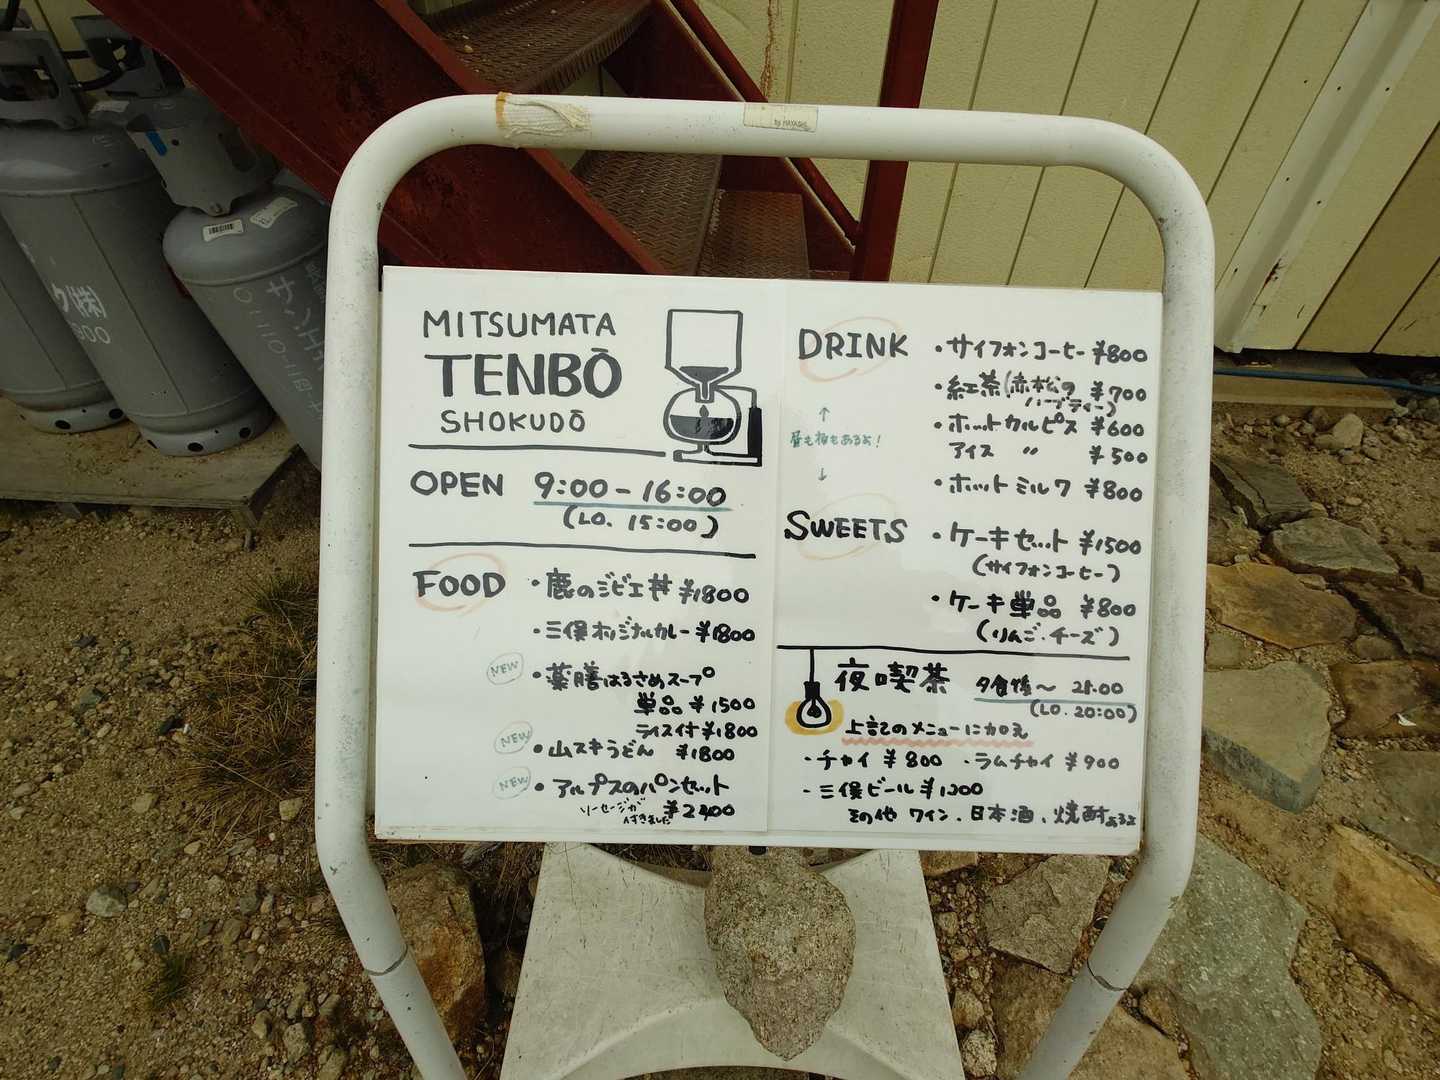 by HAYASHI
MITSUMATA
TENBŌ
SHOKUDŌ
OPEN 9:00-16:00
(LO. 15:00)
FOOD
・鹿のジビエ丼 ¥1800
・三俣オリジナルカレー ¥1800
NEW
・薬膳はるさめスープ
単品 ¥1500
ライス付 ¥1800
NEW
・山スキうどん ¥1800
NEW
・アルプスのパンセット
ソーセージが
¥2400
DRINK
・サイフォンコーヒー ¥800
・紅茶(赤松の ¥700
ハーブティー)
・ホットカルピス ¥600
アイス 〃 ¥500
・ホットミルク ¥800
↑
昼も夜もあるよ!
↓
SWEETS
・ケーキセット ¥1500
(サイフォンコーヒー)
・ケーキ単品 ¥800
(りんご・チーズ)
夜喫茶 夕食後〜
(LO. 20:00)
上記のメニューに加え
・チャイ ¥800 ・ラムチャイ ¥900
・三俣ビール
その他 ワイン、日本酒、焼酎あるよ
ク(株)
サンリン